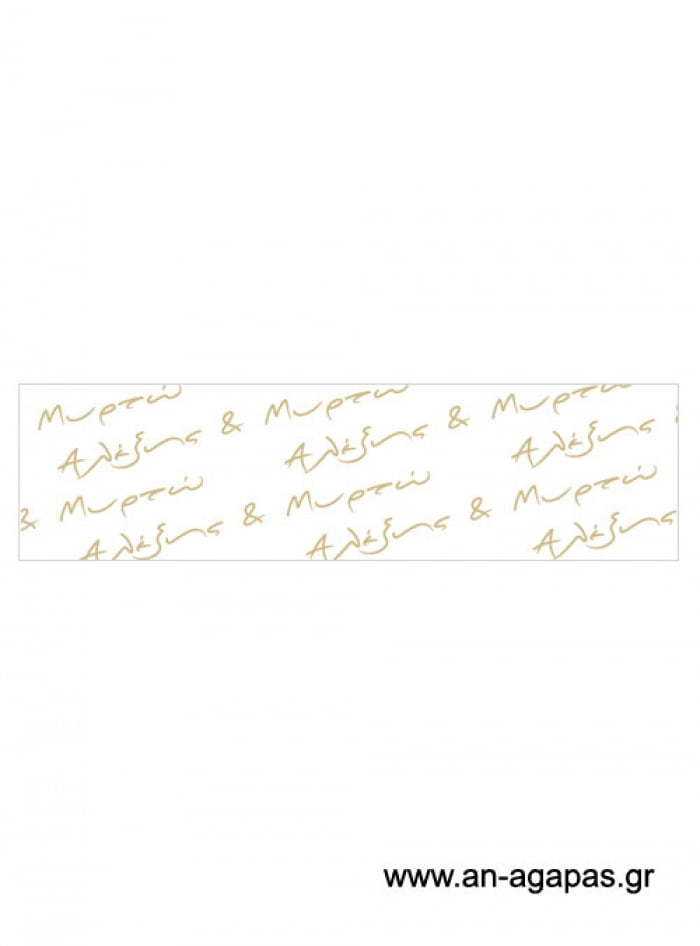 Μυρτώ & Μυρτώ & Μυρτώ &
Αλέξης Αλέξης Αλέξης
& Μυρτώ & Μυρτώ & Μυρτώ
Αλέξης Αλέξης Αλέξης
www.an-agapas.gr